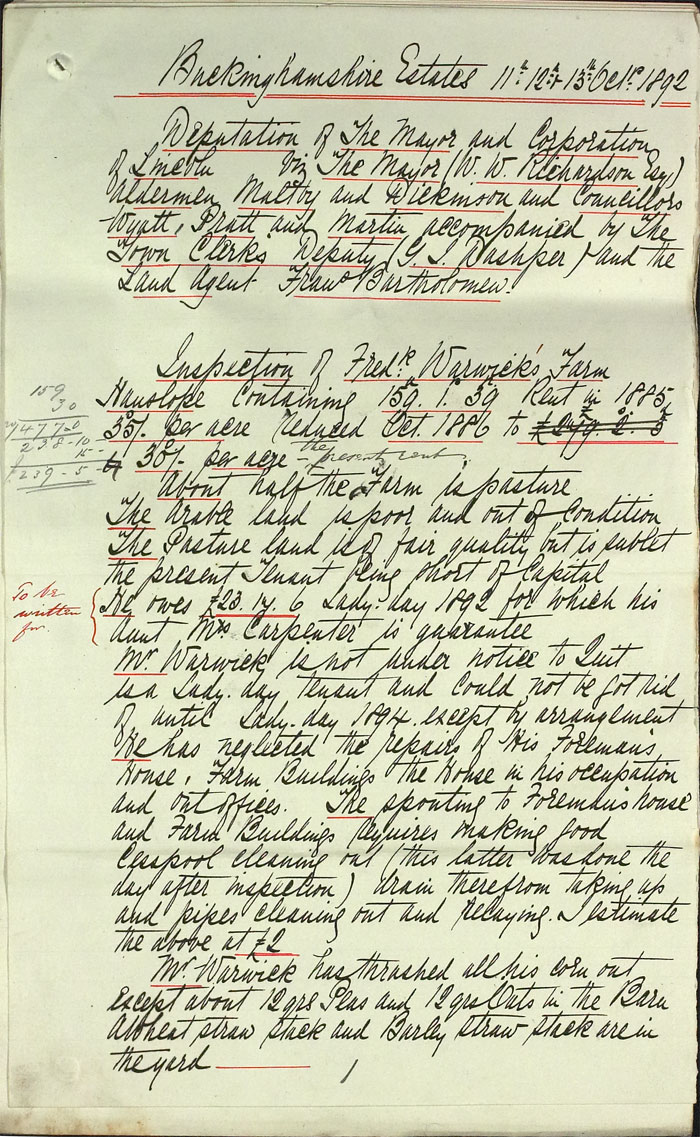 Buckinghamshire Estates 11th 12th & 13th Octr. 1892
Deputation of The Mayor and Corporation
of Lincoln Viz The Mayor (W. W. Richardson Esq)
Aldermen Maltby and Dickinson and Councillors
Wyatt, Pratt and Martin accompanied by The
Town Clerks Deputy (G. S. Dashper) and the
Land Agent Frans Bartholomew.
Inspection of Fredk. Warwick's Farm
Hanslope Containing 159. 1. 39 Rent in 1885,
35/- per acre reduced Oct. 1886 to £279. 2. 3
30/- per acre - the present rent.
159
30
4770
238-10
15-
239-5
About half the Farm is pasture
The Arable land is poor and out of Condition
The Pasture land is of fair quality but is sublet
the present Tenant being short of Capital
To be
written
for
He owes £23. 14. 6 Lady-day 1892 for which his
Aunt Mrs Carpenter is guarantee
Mr. Warwick is not under notice to Quit
is a Lady-day tenant and could not be got rid
of until Lady-day 1894 except by arrangement
He has neglected the repairs of His Foreman's
House, Farm Buildings the House in his occupation
and out offices. The spouting to Foreman's house
and Farm Buildings requires making good
Cesspool cleaning out (this latter was done the
day after inspection) drain therefrom taking up
and pipes cleaning out and relaying. I estimate
the above at £2
Mr. Warwick has thrashed all his corn out
except about 12 qrs Peas and 12 qrs Oats in the Barn
A Wheat straw stack and Barley straw stack are in
the yard
1